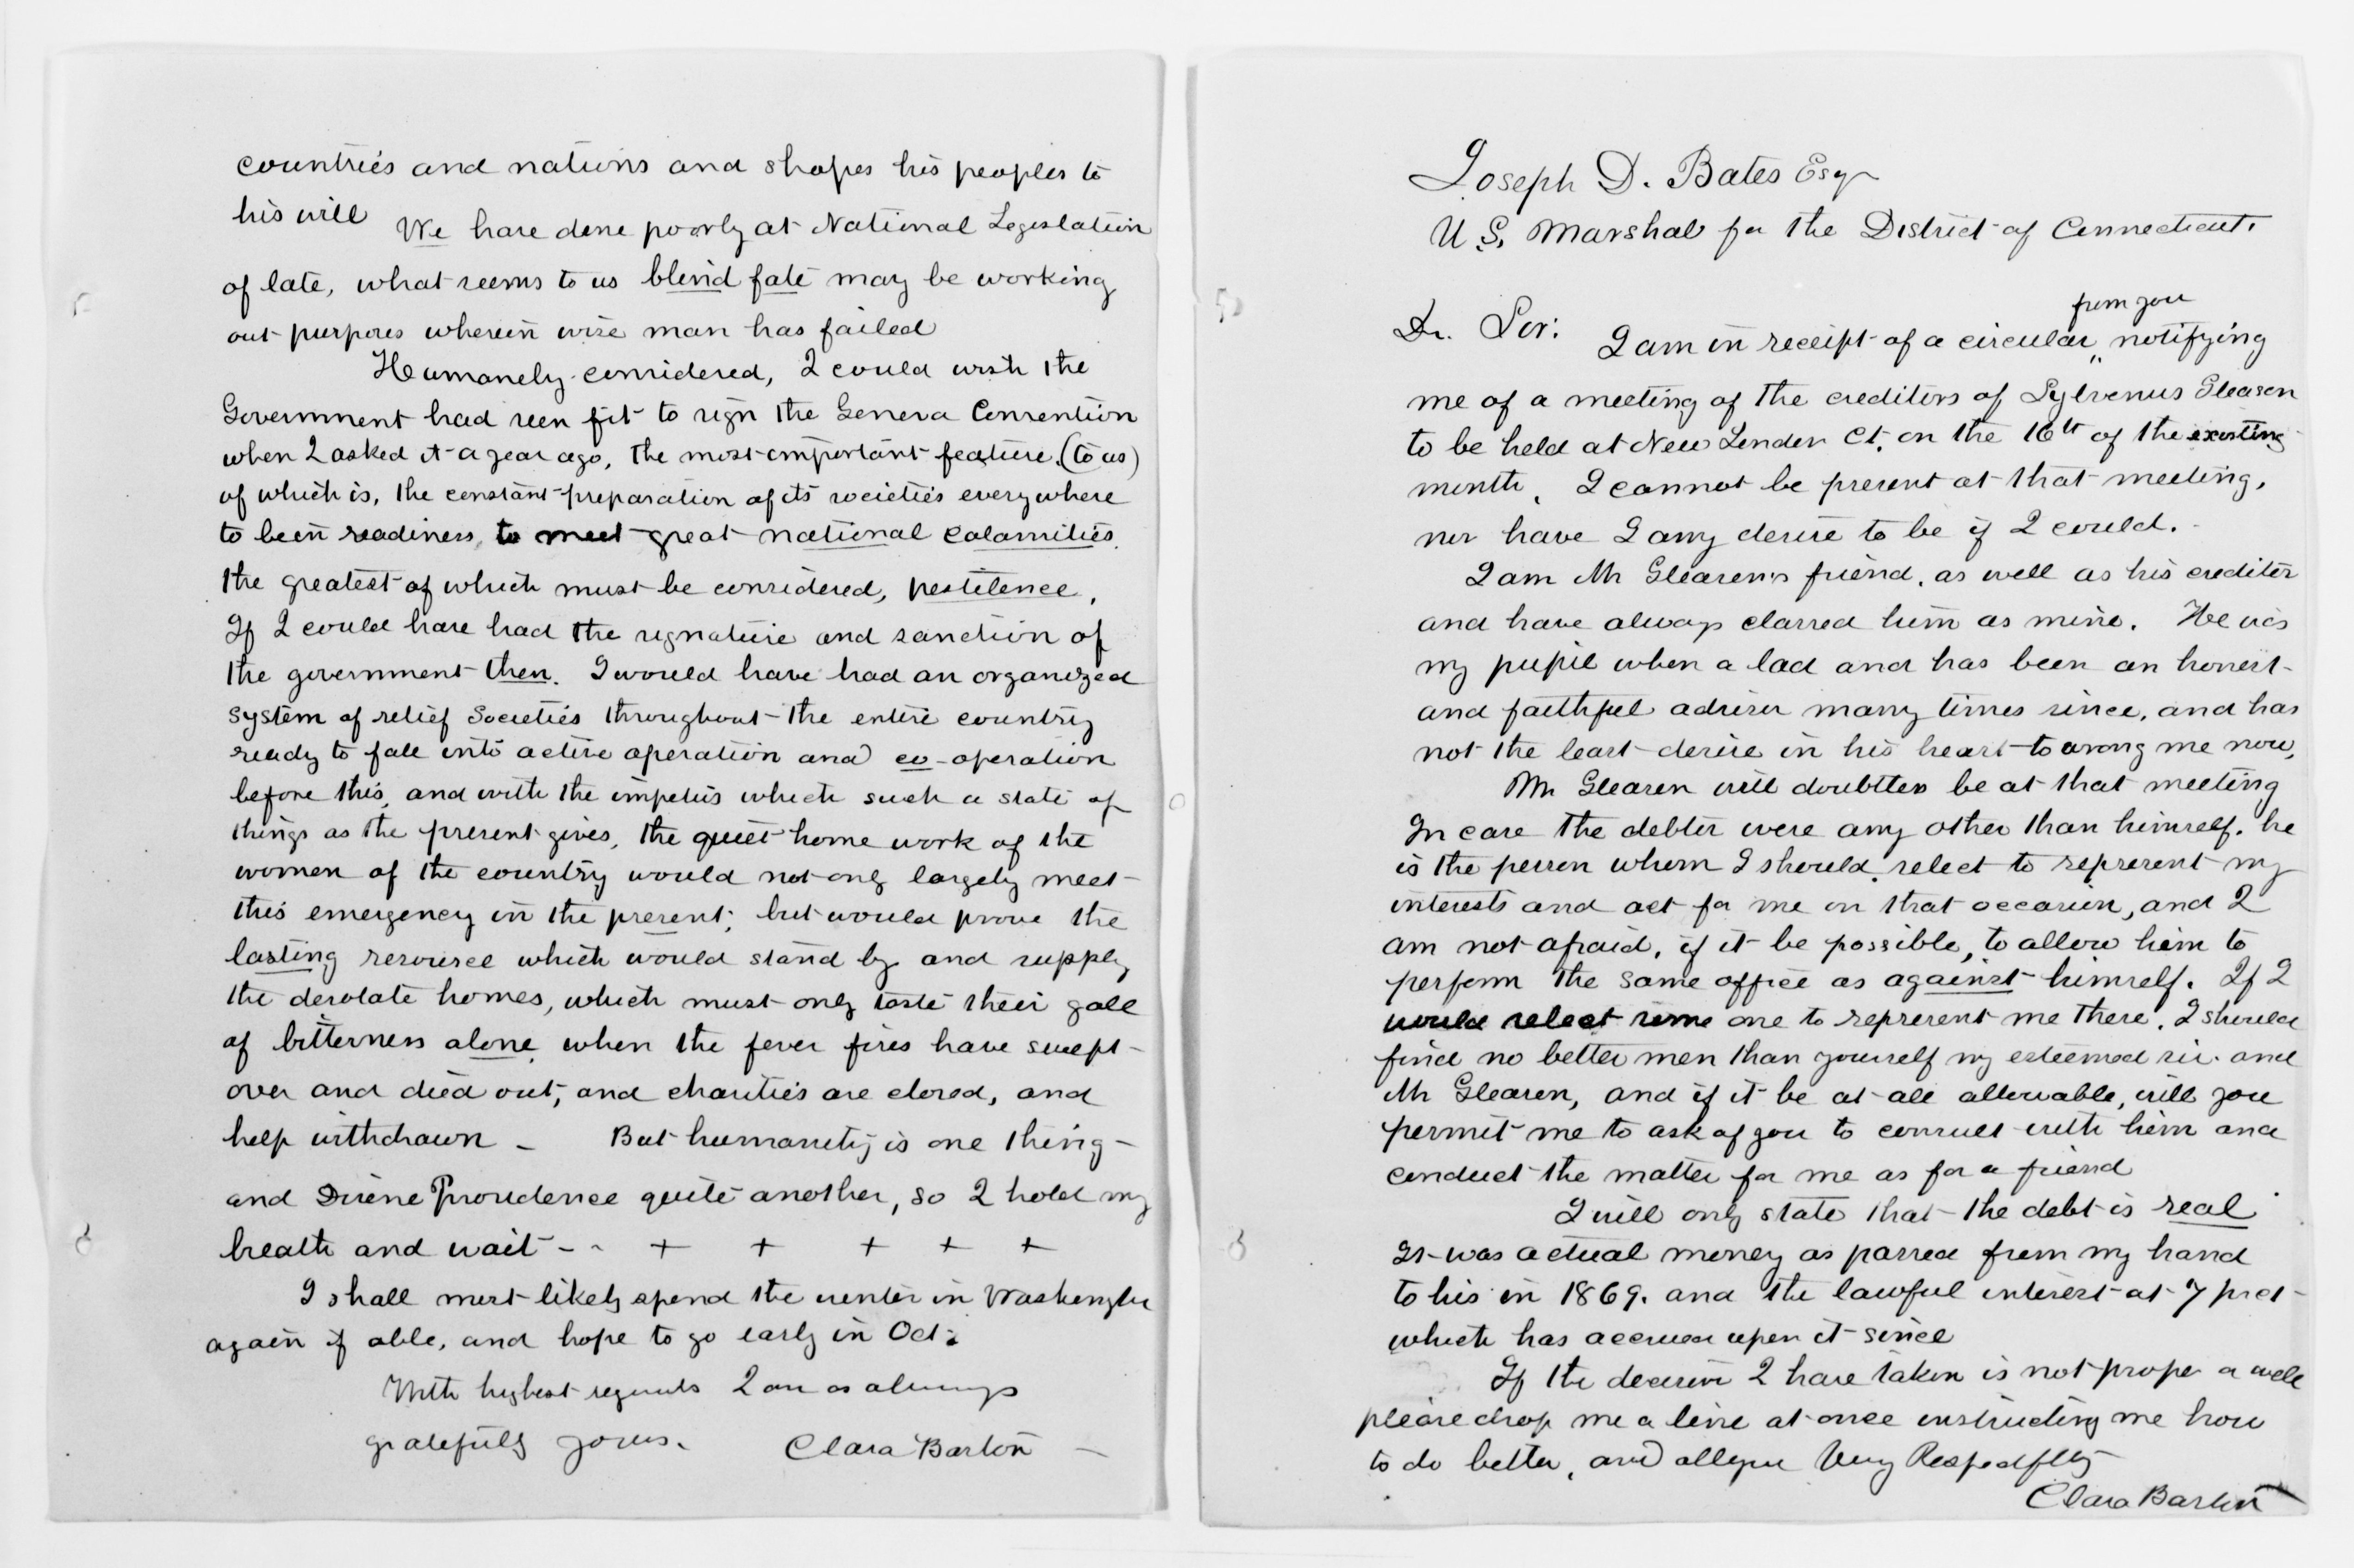 countries and nations and shapes his peoples to
his will We have done poorly at National Legislation
of late, what seems to us blind fate may be working
out purposes wherein wise man has failed
Humanely considered, I could wish the
Government had seen fit to sign the Geneva Convention
when I asked it a year ago, the most important feature, (to us)
of which is, the constant preparation of its societies everywhere
to be in readiness, to meet great national calamities.
the greatest of which must be considered, pestilence,
If I could have had the signature and sanction of
the government then. I would have had an organized
system of relief Societies throughout the entire country
ready to fall into active operation and co-operation
before this, and with the impetus which such a state of
things as the present gives, the quiet home work of the
women of the country would not only largely meet
this emergency in the present; but would prove the
lasting resource which would stand by and supply
the desolate homes, which must only taste their gall
of bitterness alone, when the fever fires have swept
over and died out; and charities are closed, and
help withdrawn - But humanity is one thing -
and Divine Providence quite another, so I hold my
breath and wait - - + + + + +
I shall most likely spend the winter in Washington
again if able, and hope to go early in Oct:
With highest regards I am as always
gratefully yours. Clara Barton
Joseph D. Bates Esq
U. S. Marshal for the District of Connecticut.
from you
Dr. Sir: I am in receipt of a circular,, notifying
me of a meeting of the creditors of Sylvenus Gleason
to be held at New London Ct. on the 16th of the existing
month, I cannot be present at that meeting,
nor have I any desire to be if I could. -
I am Mr Gleason's friend, as well as his creditor
and have always classed him as mine. He was
my pupil when a lad and has been an honest
and faithful adviser many times since, and has
not the least desire in his heart to wrong me now,
Mr Gleason will doubtless be at that meeting
In case the debtor were any other than himself. he
is the person whom I should select to represent my
interests and act for me on that occasion, and I
am not afraid, if it be possible, to allow him to
perform the same office as against himself. If I
would select some one to represent me there, I should
find no better men than yourself my esteemed sir. and
Mr Gleason, and if it be at all allowable, will you
permit me to ask of you to consult with him and
conduct the matter for me as for a friend
I will only state that the debt is real
It was actual money as passed from my hand
to his in 1869. and the lawful interest at 7 prct
which has accrued upon it since
If the decision I have taken is not proper or well
please drop me a line at once instructing me how
to do better, and Very Respectflly
Clara Barton